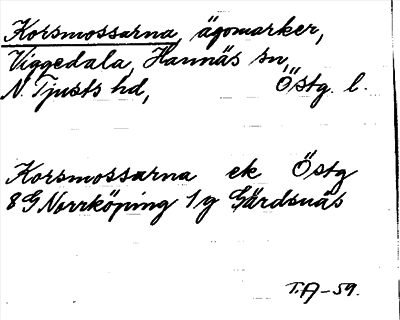 Korsmossarna, ägomarker,
Viggedala, Hannäs sn,
N. Tjusts hd, Östg. l.
Korsmossarna ek Östg
8G Norrköping 1g Gärdsnäs
T.A-59.